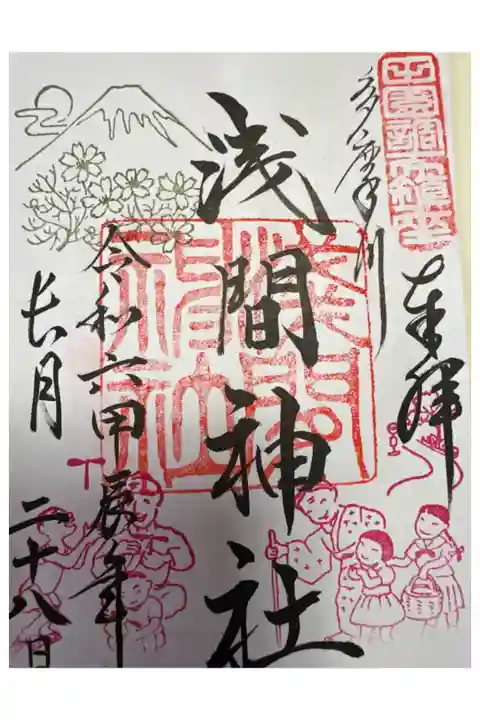 奉拝
多摩川
浅間神社
令和六甲辰年
長月
二十八日
浅間神社